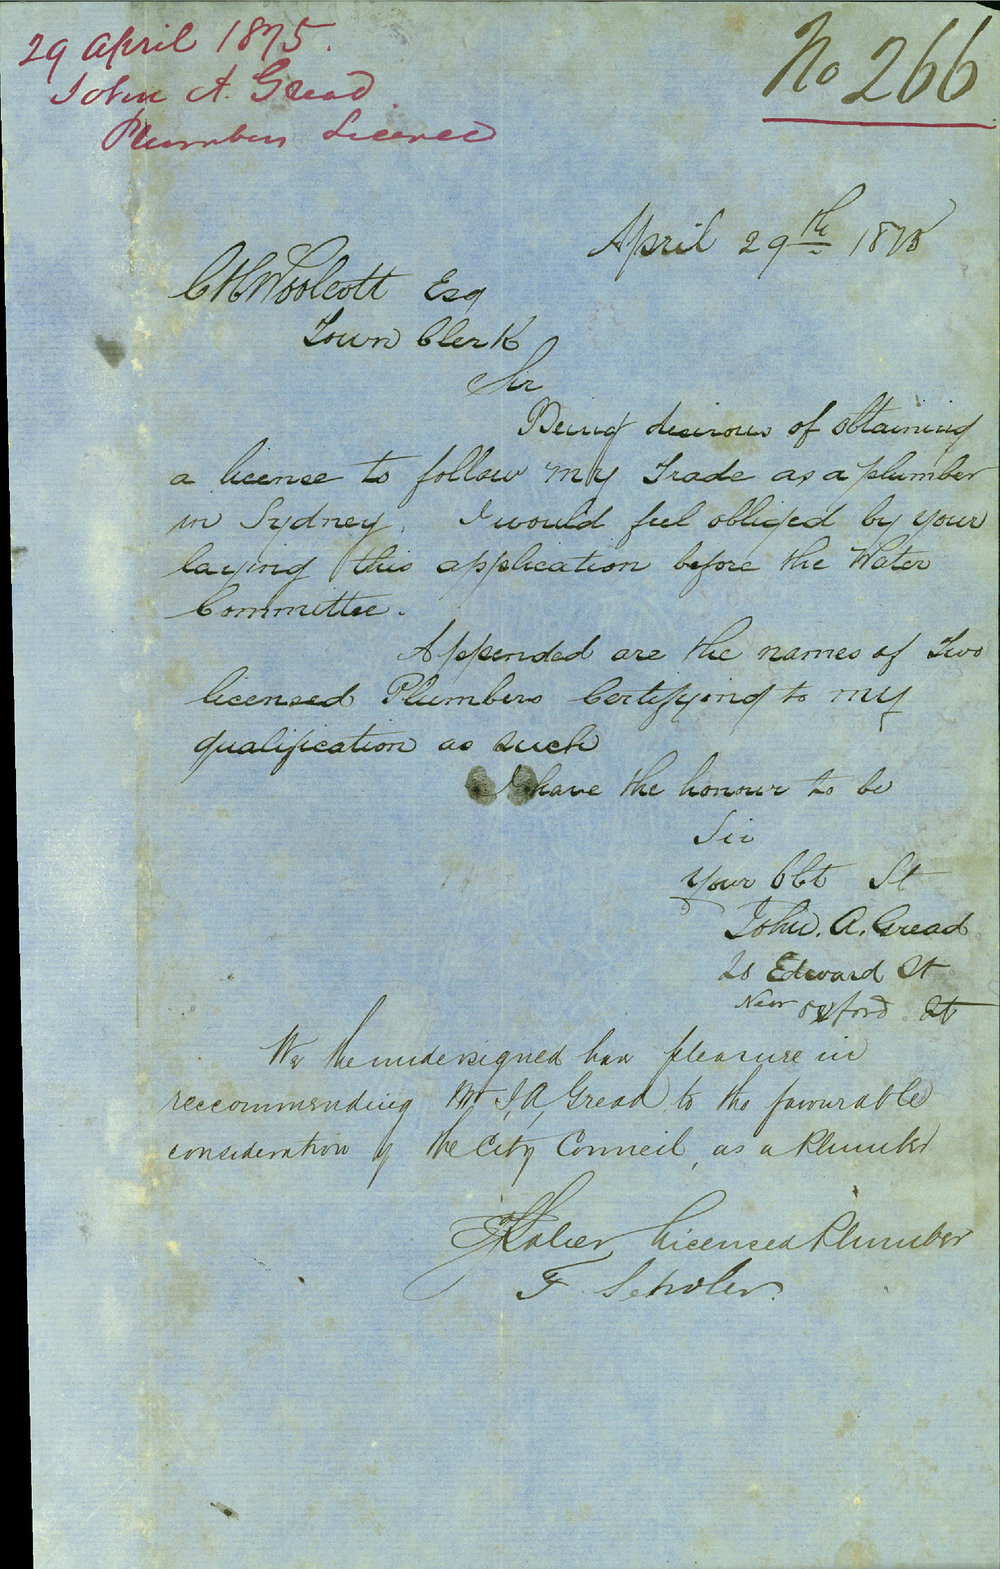 29 April 1875.
John A. Gread
Plumbers Licence
No 266
April 29th 1875
C H Woolcott Esq
Town Clerk
Sir
Being desirous of obtaining
a license to follow my Trade as a plumber
in Sydney. I would feel obliged by your
laying this application before the Water
Committee.
Appended are the names of Two
licensed Plumbers Certifying to my
qualification as such
I have the honour to be
Sir
Your Obt St
John. A. Gread
Edward St
Near Oxford St
We the undersigned have pleasure in
reccommending Mr J, A, Gread to the favourable
consideration of the City Council, as a Plumber
Licensed Plumber
F. Scholer.